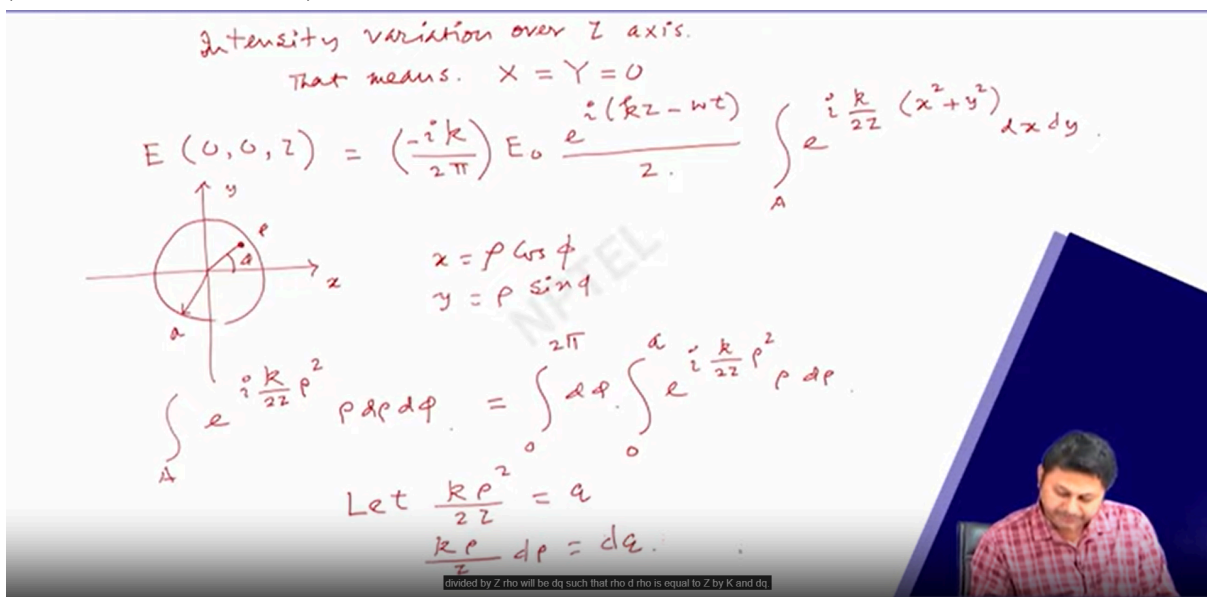 Intensity variation over Z axis.
That means. X = Y = 0
E (0,0,Z) = (-ik/2π) E₀ e^{i(kz-wt)}/Z. ∫_A e^{i k/2Z (x²+y²)} dx dy.
y
ρ
φ
x
a
x = ρ Cos φ
y = ρ sin φ
NPTEL
∫_A e^{i k/2Z ρ²} ρ dρ dφ. = ∫_0^{2π} dφ. ∫_0^a e^{i k/2Z ρ²} ρ dρ.
Let kρ²/2Z = q
kρ/Z dρ = dq.
divided by Z rho will be dq such that rho d rho is equal to Z by K and dq.